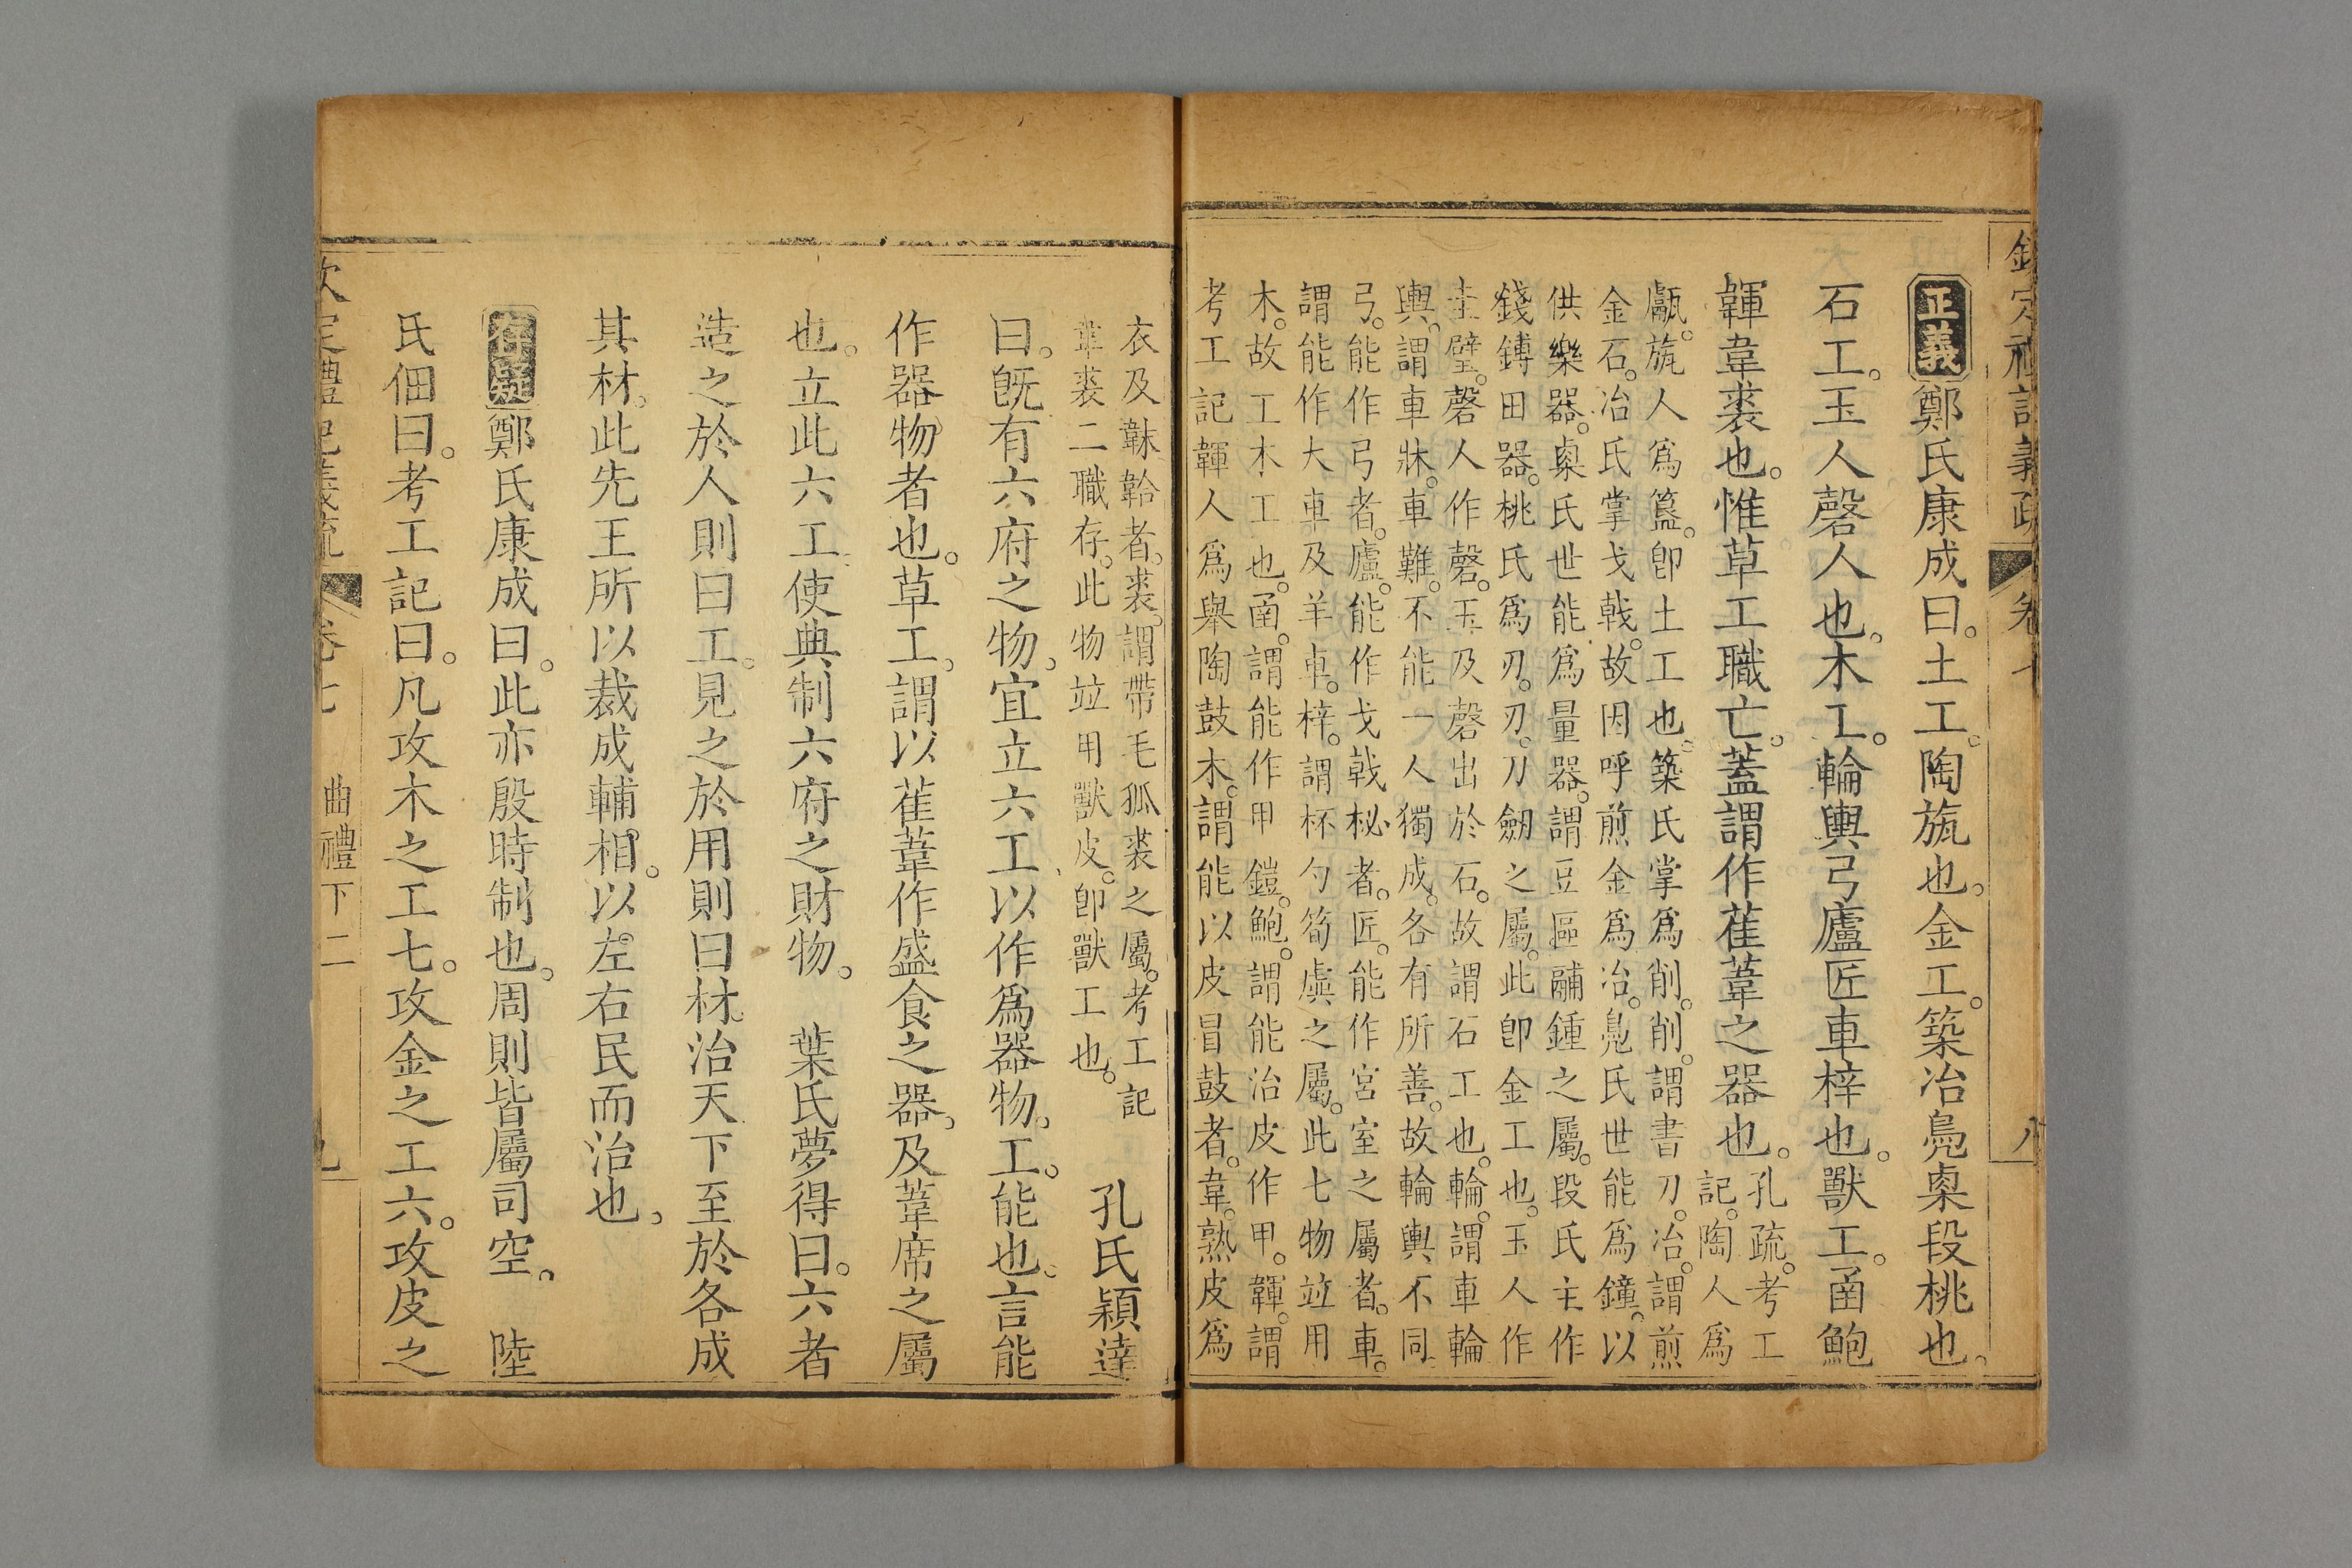 欽定禮記義疏 卷七 八
正義鄭氏康成曰。土工。陶旊也。金工。築冶鳧㮚段桃也。
石工。玉人磬人也。木工。輪輿弓廬匠車梓也。獸工。函鮑
韗韋裘也。惟草工職亡。蓋謂作萑葦之器也。
孔疏。考工
記。陶人為
甗。旊人為簋。卽土工也。築氏掌為削。削。謂書刀。冶。謂煎
金石。冶氏掌戈戟。故因呼煎金為冶。鳧氏世能為鐘。以
供樂器。㮚氏世能為量器。謂豆區鬴鍾之屬。段氏主作
錢鎛田器。桃氏為刃。刃。刀劒之屬。此卽金工也。玉人作
圭璧。磬人作磬。玉及磬出於石。故謂石工也。輪。謂車輪
輿。謂車牀。車難。不能一人獨成。各有所善。故輪輿不同
弓。能作弓者。廬。能作戈戟柲者。匠。能作宮室之屬者。車。
謂能作大車及羊車。梓。謂杯勺筍虡之屬。此七物竝用
木。故工木工也。函。謂能作甲鎧。鮑。謂能治皮作甲。韗。謂
考工記韗人為皋陶鼓木。謂能以皮冒鼓者。韋。熟皮為
衣及韎韐者。裘。謂帶毛狐裘之屬。考工記
韋裘二職存。此物竝用獸皮。卽獸工也。
孔氏穎達
曰。既有六府之物。宜立六工以作為器物。工。能也。言能
作器物者也。草工。謂以萑葦作盛食之器。及葦席之屬
也。立此六工。使典制六府之財物。 葉氏夢得曰。六者
造之於人則曰工。見之於用則曰材。治天下至於各成
其材。此先王所以裁成輔相。以左右民而治也。
存疑鄭氏康成曰。此亦殷時制也。周則皆屬司空。 陸
氏佃曰。考工記曰。凡攻木之工七。攻金之工六。攻皮之
欽定禮記義疏 卷七 曲禮下二 九